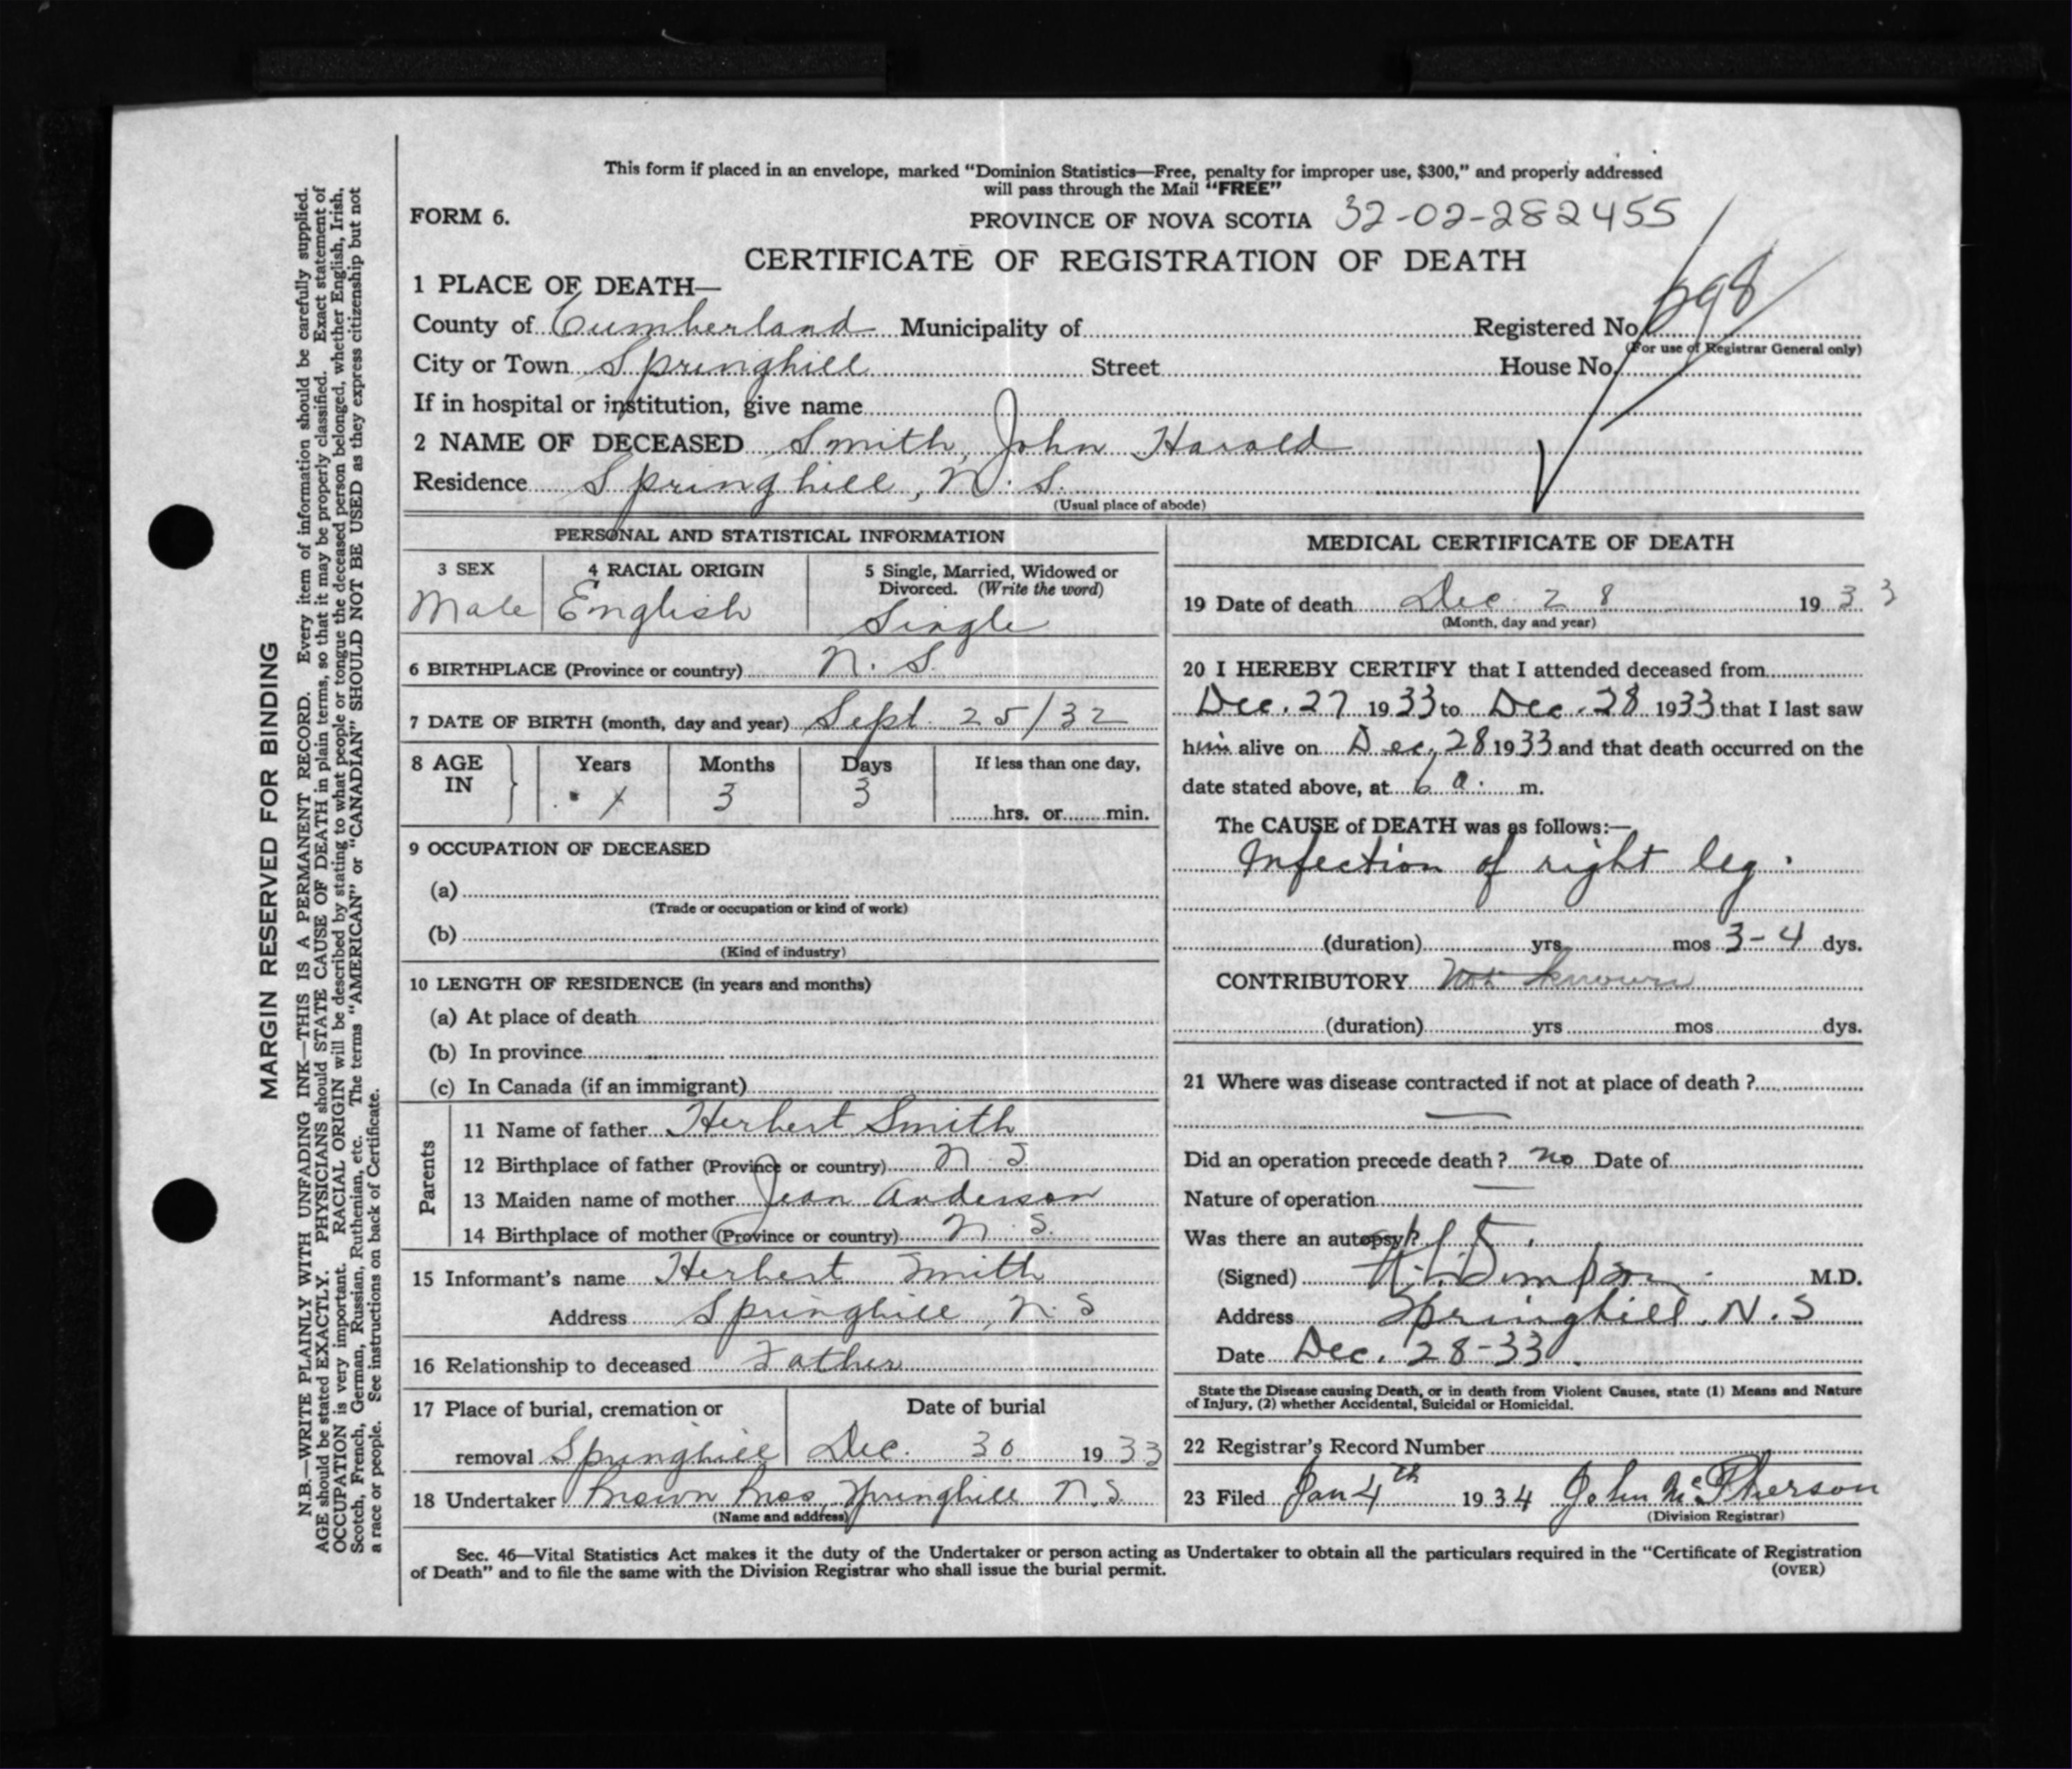 This form if placed in an envelope, marked "Dominion Statistics—Free, penalty for improper use, $300," and properly addressed
will pass through the Mail "FREE"
FORM 6.
PROVINCE OF NOVA SCOTIA 32-02-282455
CERTIFICATE OF REGISTRATION OF DEATH
1 PLACE OF DEATH—
County of Cumberland Municipality of Registered No. 698
(For use of Registrar General only)
City or Town Springhill Street House No.
If in hospital or institution, give name
2 NAME OF DECEASED Smith, John Harold
Residence Springhill, N. S.
(Usual place of abode)
PERSONAL AND STATISTICAL INFORMATION
3 SEX 4 RACIAL ORIGIN 5 Single, Married, Widowed or
Divorced. (Write the word)
Male English Single
6 BIRTHPLACE (Province or country) N. S.
7 DATE OF BIRTH (month, day and year) Sept. 25/32
8 AGE IN Years Months Days If less than one day,
1 3 3 hrs. or min.
9 OCCUPATION OF DECEASED
(a)
(Trade or occupation or kind of work)
(b)
(Kind of industry)
10 LENGTH OF RESIDENCE (in years and months)
(a) At place of death
(b) In province
(c) In Canada (if an immigrant)
Parents
11 Name of father Herbert Smith
12 Birthplace of father (Province or country) N S.
13 Maiden name of mother Jean Anderson
14 Birthplace of mother (Province or country) N. S.
15 Informant's name Herbert Smith
Address Springhill, N. S
16 Relationship to deceased Father
17 Place of burial, cremation or Date of burial
removal Springhill Dec. 30 1933
18 Undertaker Brown Bros, Springhill N.S.
(Name and address)
MEDICAL CERTIFICATE OF DEATH
19 Date of death Dec. 28 1933
(Month, day and year)
20 I HEREBY CERTIFY that I attended deceased from
Dec. 27 1933 to Dec. 28 1933 that I last saw
him alive on Dec. 28 1933 and that death occurred on the
date stated above, at 6 a. m.
The CAUSE of DEATH was as follows:—
Infection of right leg.
(duration) yrs mos 3-4 dys.
CONTRIBUTORY Not known
(duration) yrs mos dys.
21 Where was disease contracted if not at place of death ?
—
Did an operation precede death ? no Date of
Nature of operation —
Was there an autopsy?
(Signed) M.D.
Address Springhill. N. S
Date Dec. 28-33
State the Disease causing Death, or in death from Violent Causes, state (1) Means and Nature
of Injury, (2) whether Accidental, Suicidal or Homicidal.
22 Registrar's Record Number
23 Filed Jan 4th 1934 John McPherson
(Division Registrar)
Sec. 46—Vital Statistics Act makes it the duty of the Undertaker or person acting as Undertaker to obtain all the particulars required in the "Certificate of Registration
of Death" and to file the same with the Division Registrar who shall issue the burial permit.
(OVER)
MARGIN RESERVED FOR BINDING
N.B.—WRITE PLAINLY WITH UNFADING INK—THIS IS A PERMANENT RECORD. Every item of information should be carefully supplied.
AGE should be stated EXACTLY. PHYSICIANS should STATE CAUSE OF DEATH in plain terms, so that it may be properly classified. Exact statement of
OCCUPATION is very important. RACIAL ORIGIN will be described by stating to what people or tongue the deceased person belonged, whether English, Irish,
Scotch, French, German, Russian, Ruthenian, etc. The terms "AMERICAN" or "CANADIAN" SHOULD NOT BE USED as they express citizenship but not
a race or people. See instructions on back of Certificate.